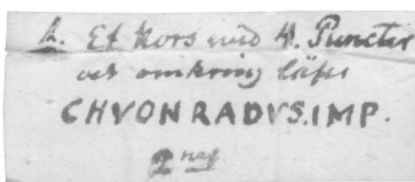 1. Et Kors med 4. Puncter
och omkring läses
CHVONRADVS.IMP.
2 nes